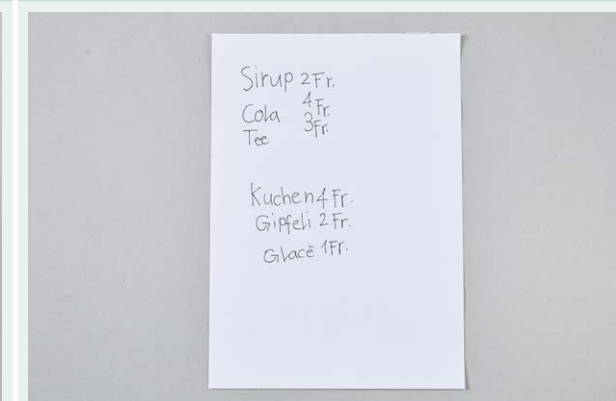 Sirup 2 Fr.
Cola 4 Fr.
Tee 3 Fr.
Kuchen 4 Fr.
Gipfeli 2 Fr.
Glacē 1 Fr.